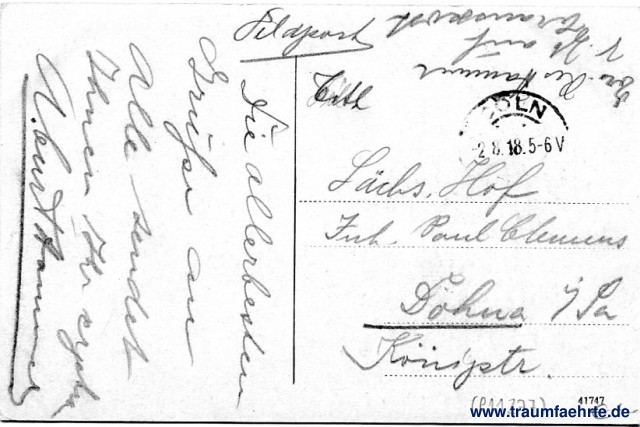 Feldpost
Die allerbesten
Grüße an
Alle sendet
Ihnen Ihr
Kurt Hammer
z. Zt. auf
CÖLN
-2.8.18.5-6V
Titl
Sächs. Hof
Inh. Paul Clemens
Dohna i/Sa
Königstr.
41747
www.traumfaehrte.de